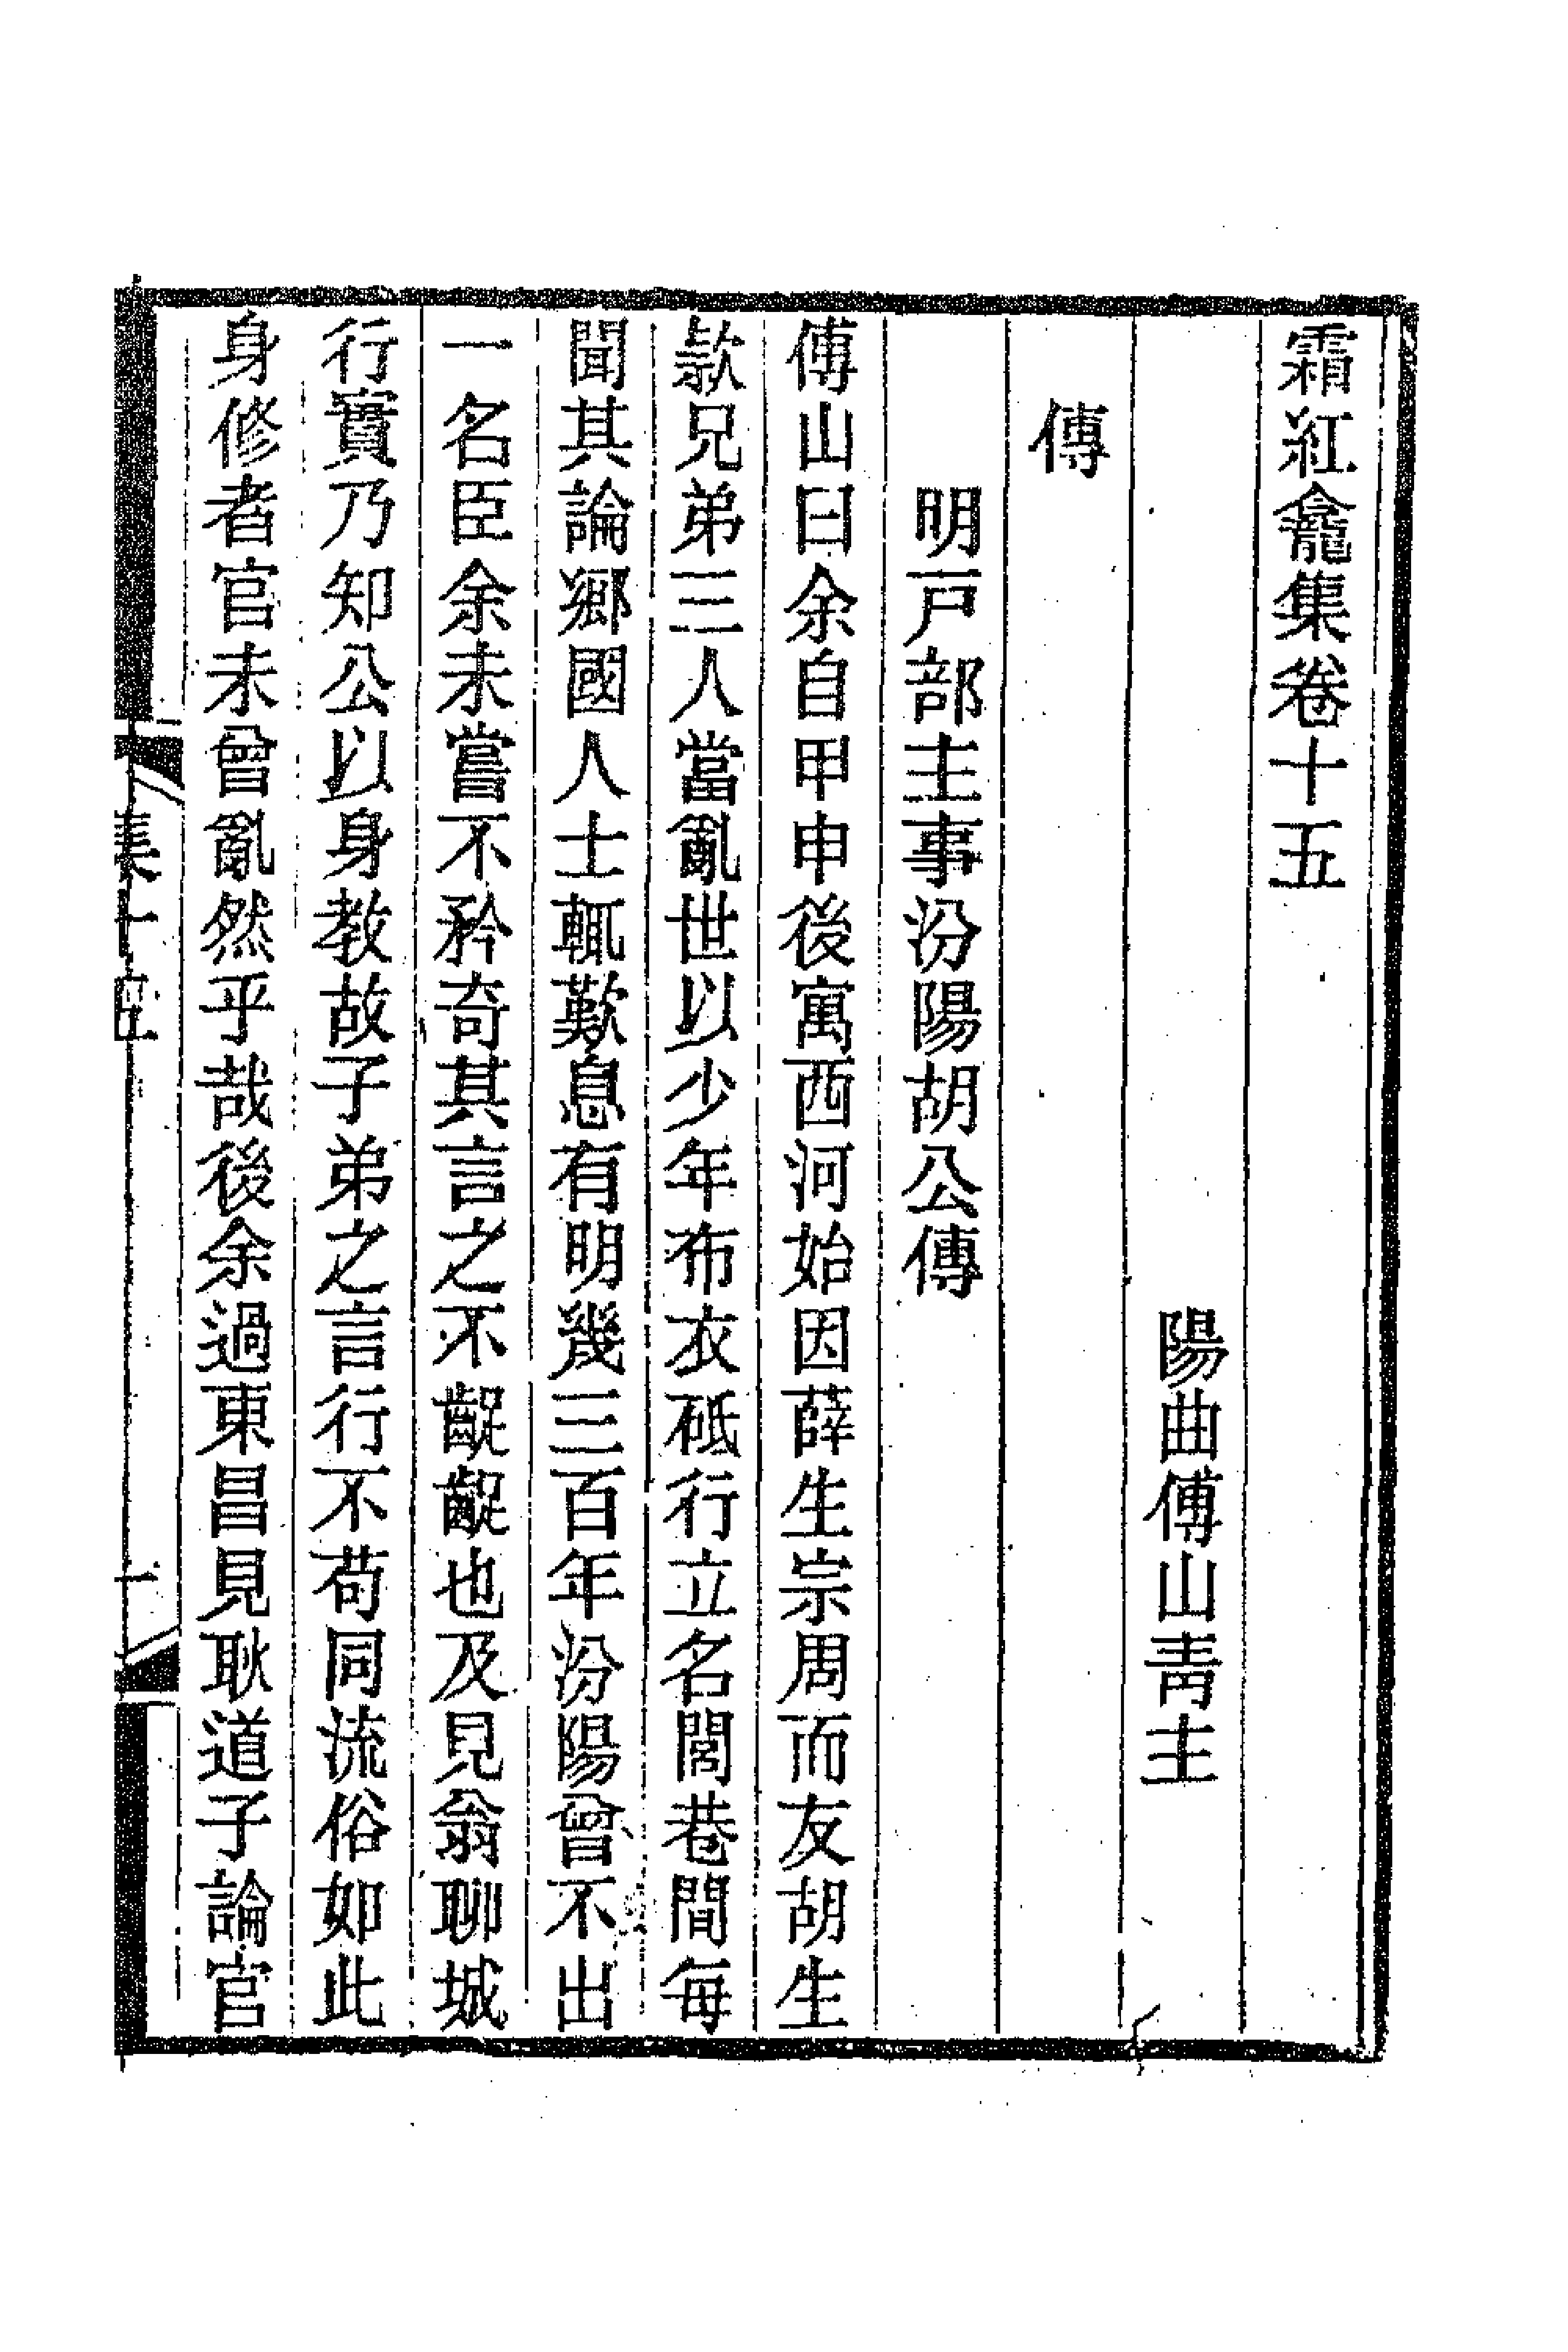 霜紅龕集卷十五
陽曲傅山靑主
傳
明戸部主事汾陽胡公傳
傅山曰余自甲申後寓西河始因薛生宗周而友胡生
款兄弟三人當亂世以少年布衣砥行立名閭巷間每
聞其論鄉國人士輒歎息有明幾三百年汾陽曾不出
一名臣余未嘗不矜奇其言之不齪齪也及見翁聊城
行實乃知公以身教故子弟之言行不苟同流俗如此
身修者官未曾亂然乎哉後余過東昌見耿道子論官
集十五
一